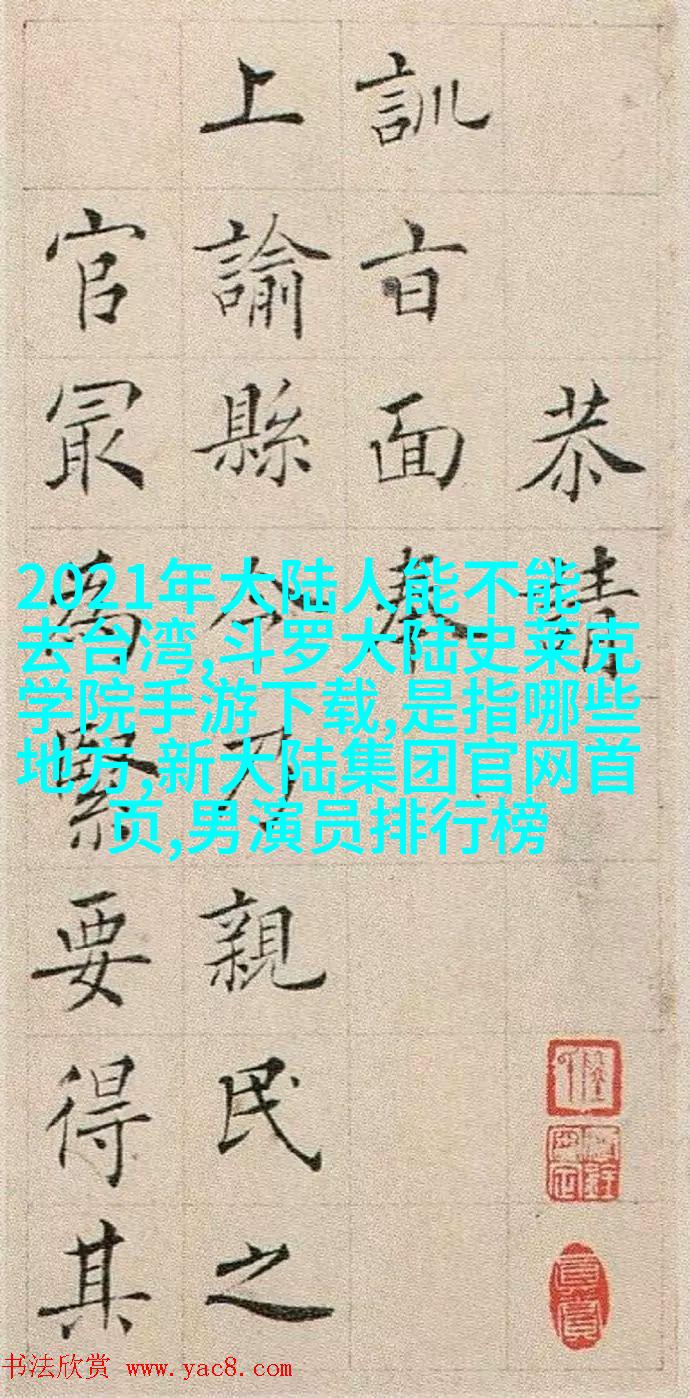 恭請
訓㫖面奉
上諭縣令乃親民之
官冣為緊要得其
2021年大陆人能不能
去台湾,斗罗大陆史莱克
学院手游下载,是指哪些
地方,新大陆集团官网首
页,男演员排行榜
书法欣赏 www.yac8.com